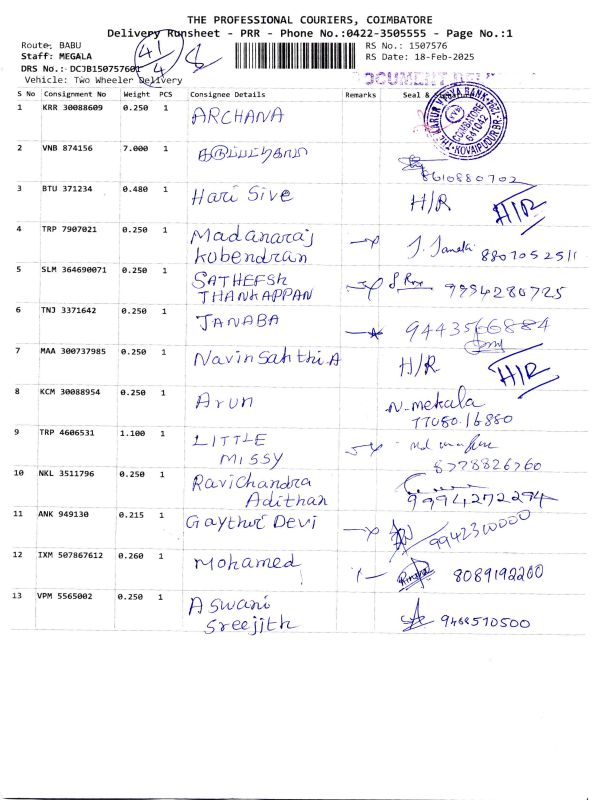 THE PROFESSIONAL COURIERS, COIMBATORE
Delivery Runsheet - PRR - Phone No.:0422-3505555 - Page No.:1
Route: BABU RS No.: 1507576
Staff: MEGALA RS Date: 18-Feb-2025
DRS No.:-DCJB150757601
Vehicle: Two Wheeler Delivery
41/4 8
S No Consignment No Weight PCS Consignee Details Remarks Seal &
THE KARUR VYSYA BANK
COIMBATORE 641042
KOVAIPUDUR BR.
1 KRR 30088609 0.250 1 ARCHANA
2 VNB 874156 7.000 1 8610880702
3 BTU 371234 0.480 1 Hari Sive H/R H/R
4 TRP 7907021 0.250 1 Madanaraj J. Janaki 8807052511
Kubendran
5 SLM 364690071 0.250 1 SATHEESH 9994280725
THANKAPPAN
6 TNJ 3371642 0.250 1 JANABA 9443566884
7 MAA 300737985 0.250 1 Navin Sahthi.A H/R H/R
8 KCM 30088954 0.250 1 Arun N. mekala
77080.16880
9 TRP 4606531 1.100 1 LITTLE
MISSY 8778826760
10 NKL 3511796 0.250 1 Ravichandra
Adithan 9994272294
11 ANK 949130 0.215 1 Gaythri Devi 9942310000
12 IXM 507867612 0.260 1 Mohamed 8089192260
13 VPM 5565002 0.250 1 Aswani
Sreejith 9468510500